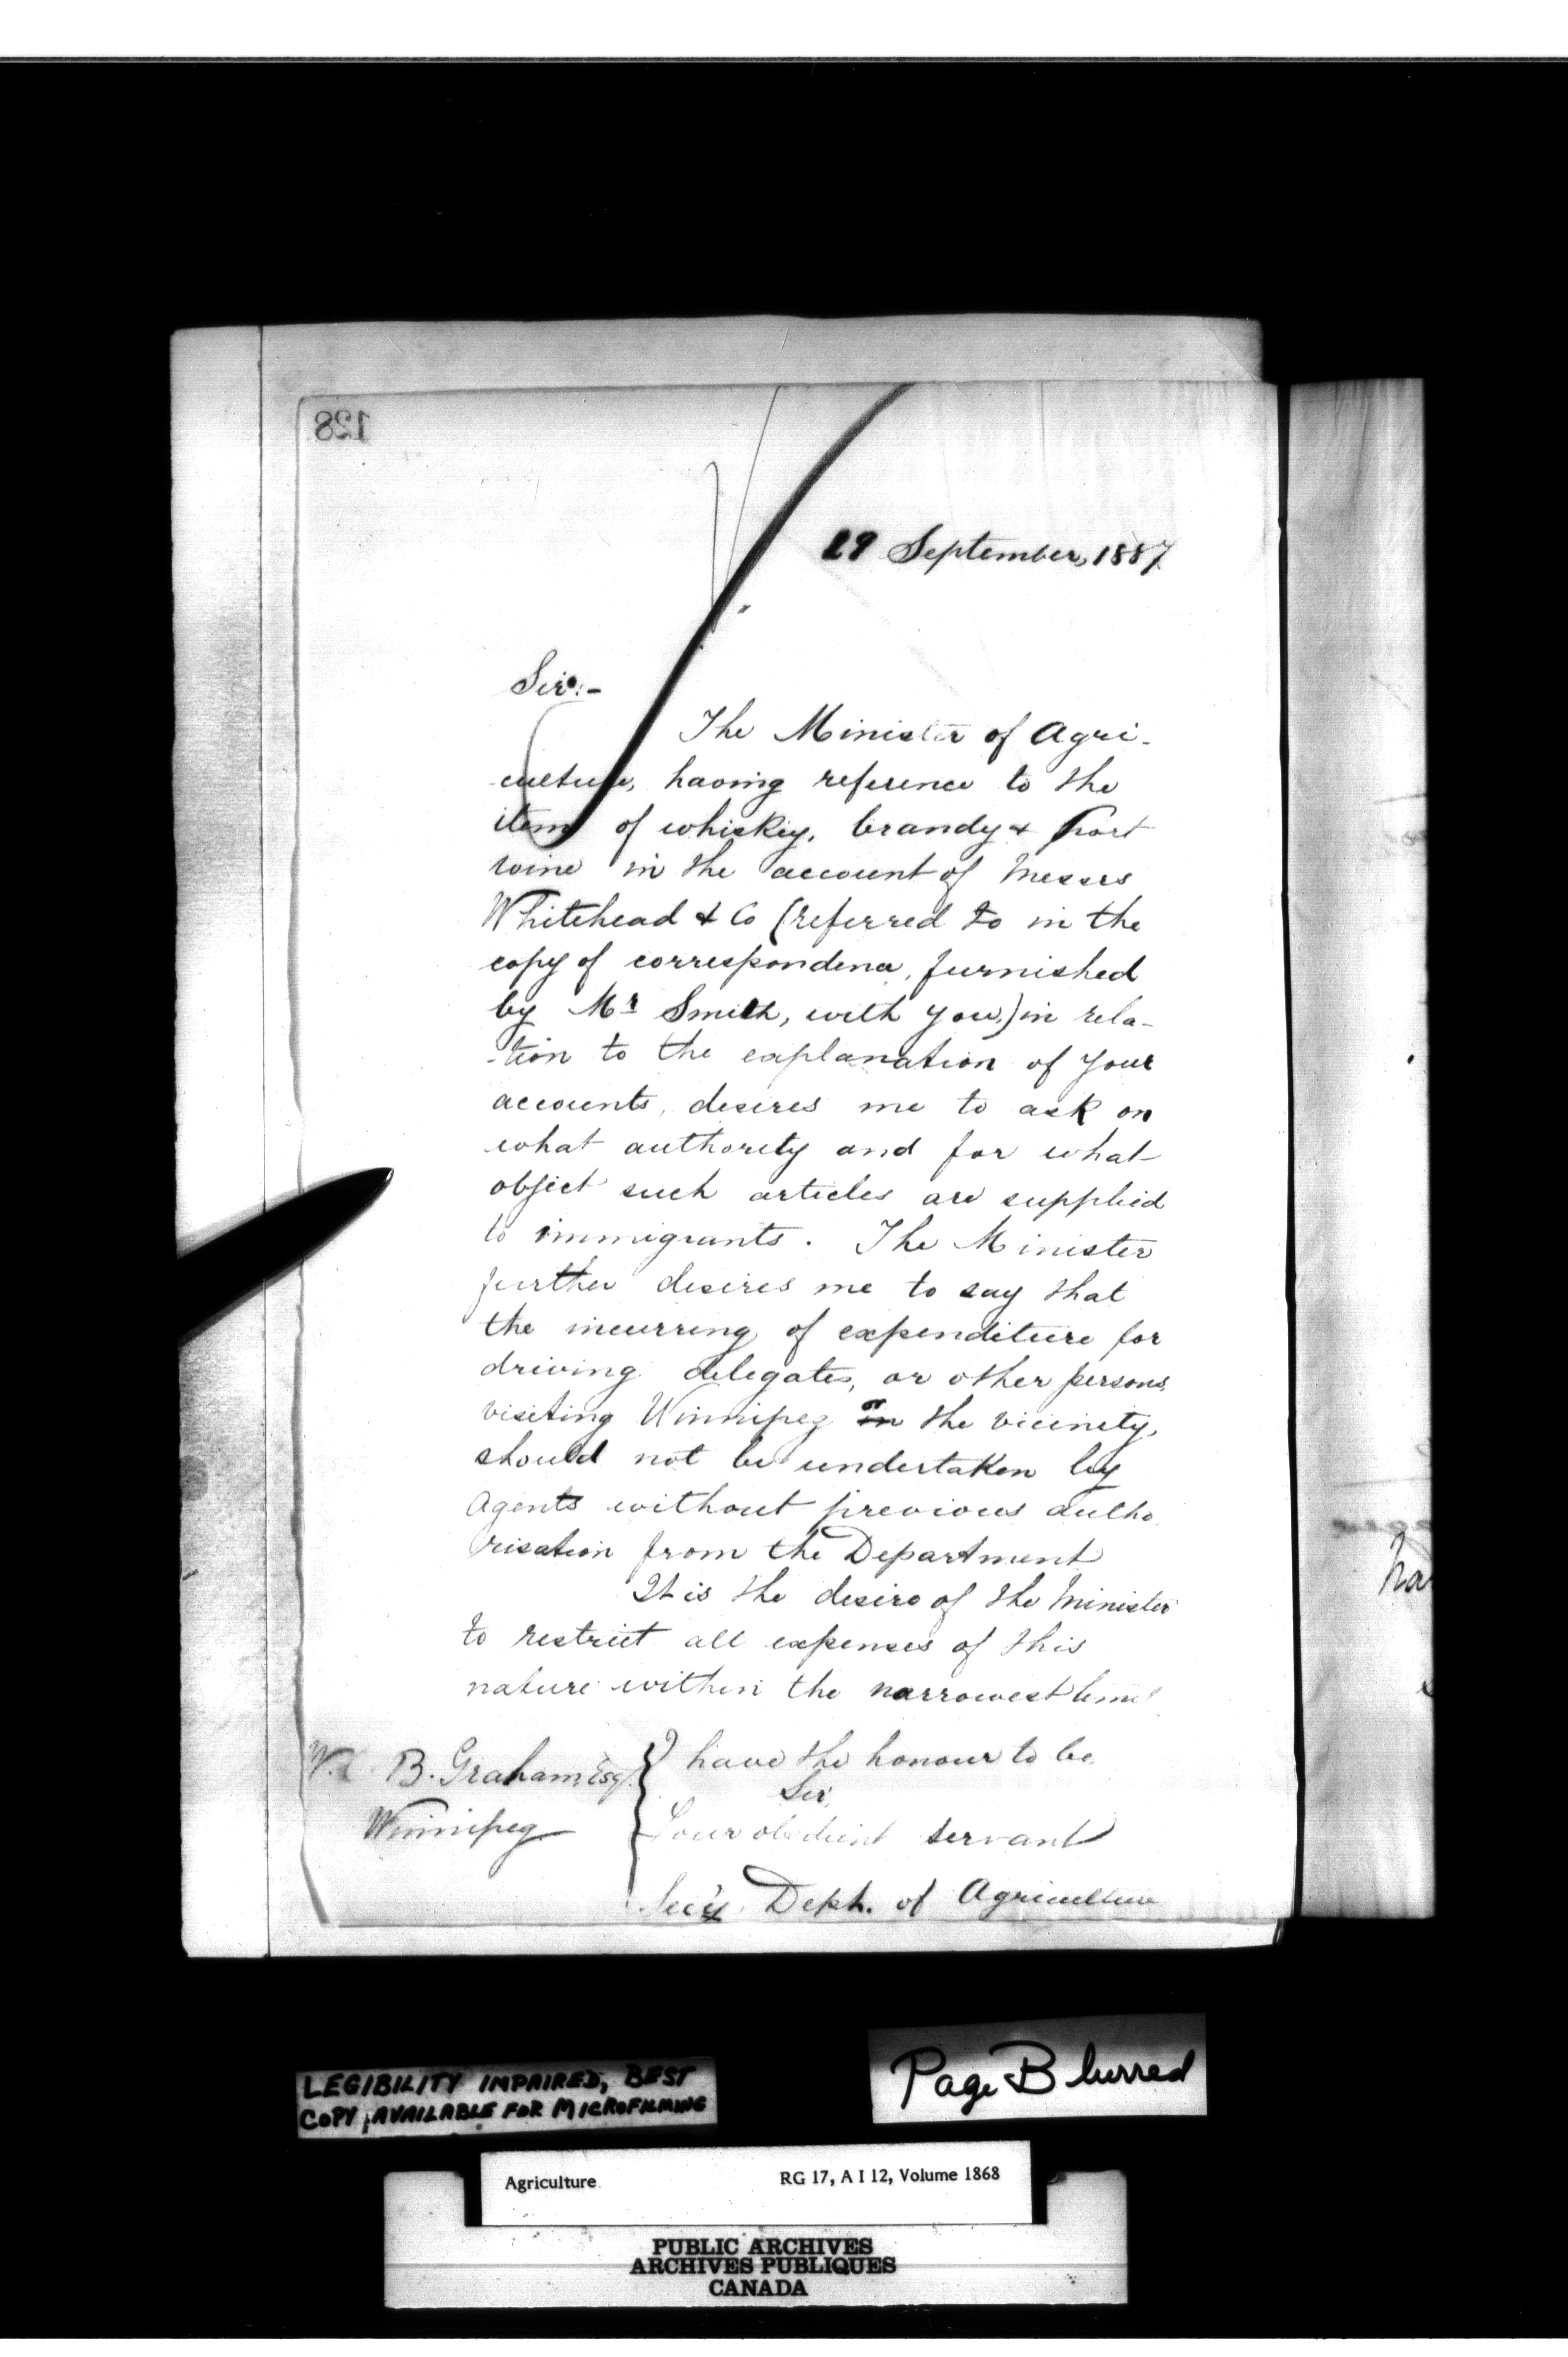 128
29 September, 1887
Sir:-
The Minister of Agri-
culture, having reference to the
item of whiskey, brandy & Port
wine in the account of Messrs
Whitehead & Co (referred to in the
copy of correspondence, furnished
by Mr Smith, with you,) in rela-
-tion to the explanation of your
accounts, desires me to ask on
what authority and for what
object such articles are supplied
to immigrants. The Minister
further desires me to say that
the incurring of expenditure for
driving delegates, or other persons,
visiting Winnipeg or the vicinity,
should not be undertaken by
Agents without previous autho
risation from the Department
It is the desire of the Minister
to restrict all expenses of this
nature within the narrowest
I have the honour to be,
Sir,
Your obedient servant
Sec'y. Dept. of Agriculture
B. Graham Esq.
Winnipeg
LEGIBILITY IMPAIRED, BEST
COPY AVAILABLE FOR MICROFILMING
Page Blurred
Agriculture RG 17, A I 12, Volume 1868
PUBLIC ARCHIVES
ARCHIVES PUBLIQUES
CANADA